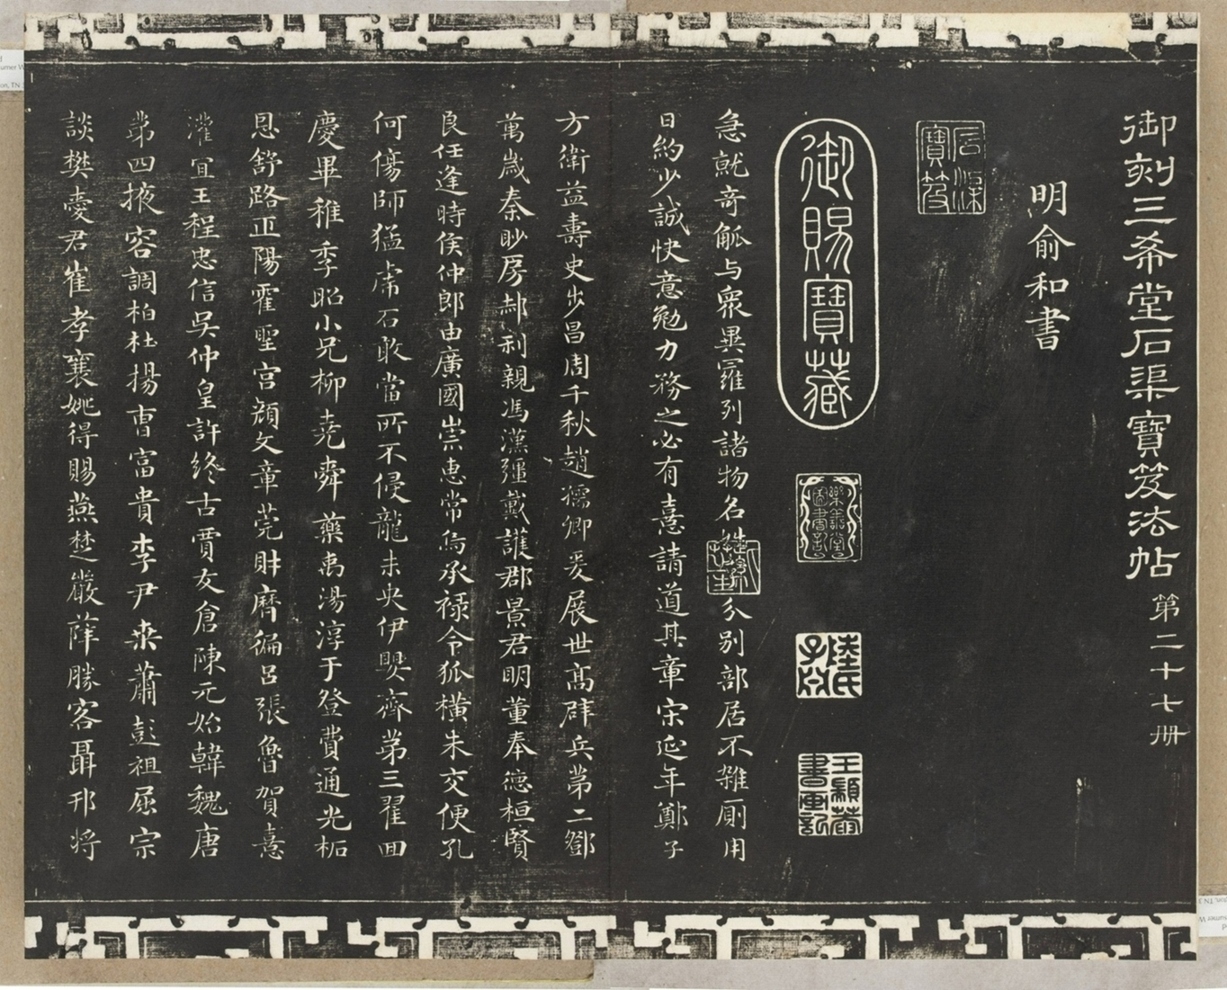 御刻三希堂石渠寶笈法帖 第二十七册
明俞和書
石渠寶笈
御賜寶藏
陸氏子𠔃
王穎蕭書画記
急就奇觚与衆異羅列諸物名姓字分别部居不雜厠用
日約少誠快意勉力務之必有憙請道其章宋延年鄭子
方衛益壽史步昌周千秋趙孺卿爰展世高辟兵苐二鄧
萬歲秦眇房郝利親馮漢彊戴護郡景君明董奉德桓賢
良任逢時侯仲郎由廣國崇惠常烏承禄令狐横朱交便孔
何傷師猛虎石敢當所不侵龍未央伊嬰齊苐三翟回
慶畢稚季昭小兄柳堯舜藥禹湯淳于登費通光柘
恩舒路正陽霍聖宫顔文章莞財曆徧吕張魯賀憙
灌宜王程忠信吳仲皇許終古賈友倉陳元始韓魏唐
苐四掖容調柏杜揚曹富貴李尹桑蕭彭祖屈宗
談樊愛君崔孝襄姚得賜燕楚嚴薛勝客聶邗将